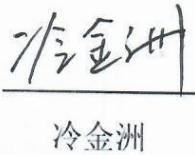 冷金洲
冷金洲